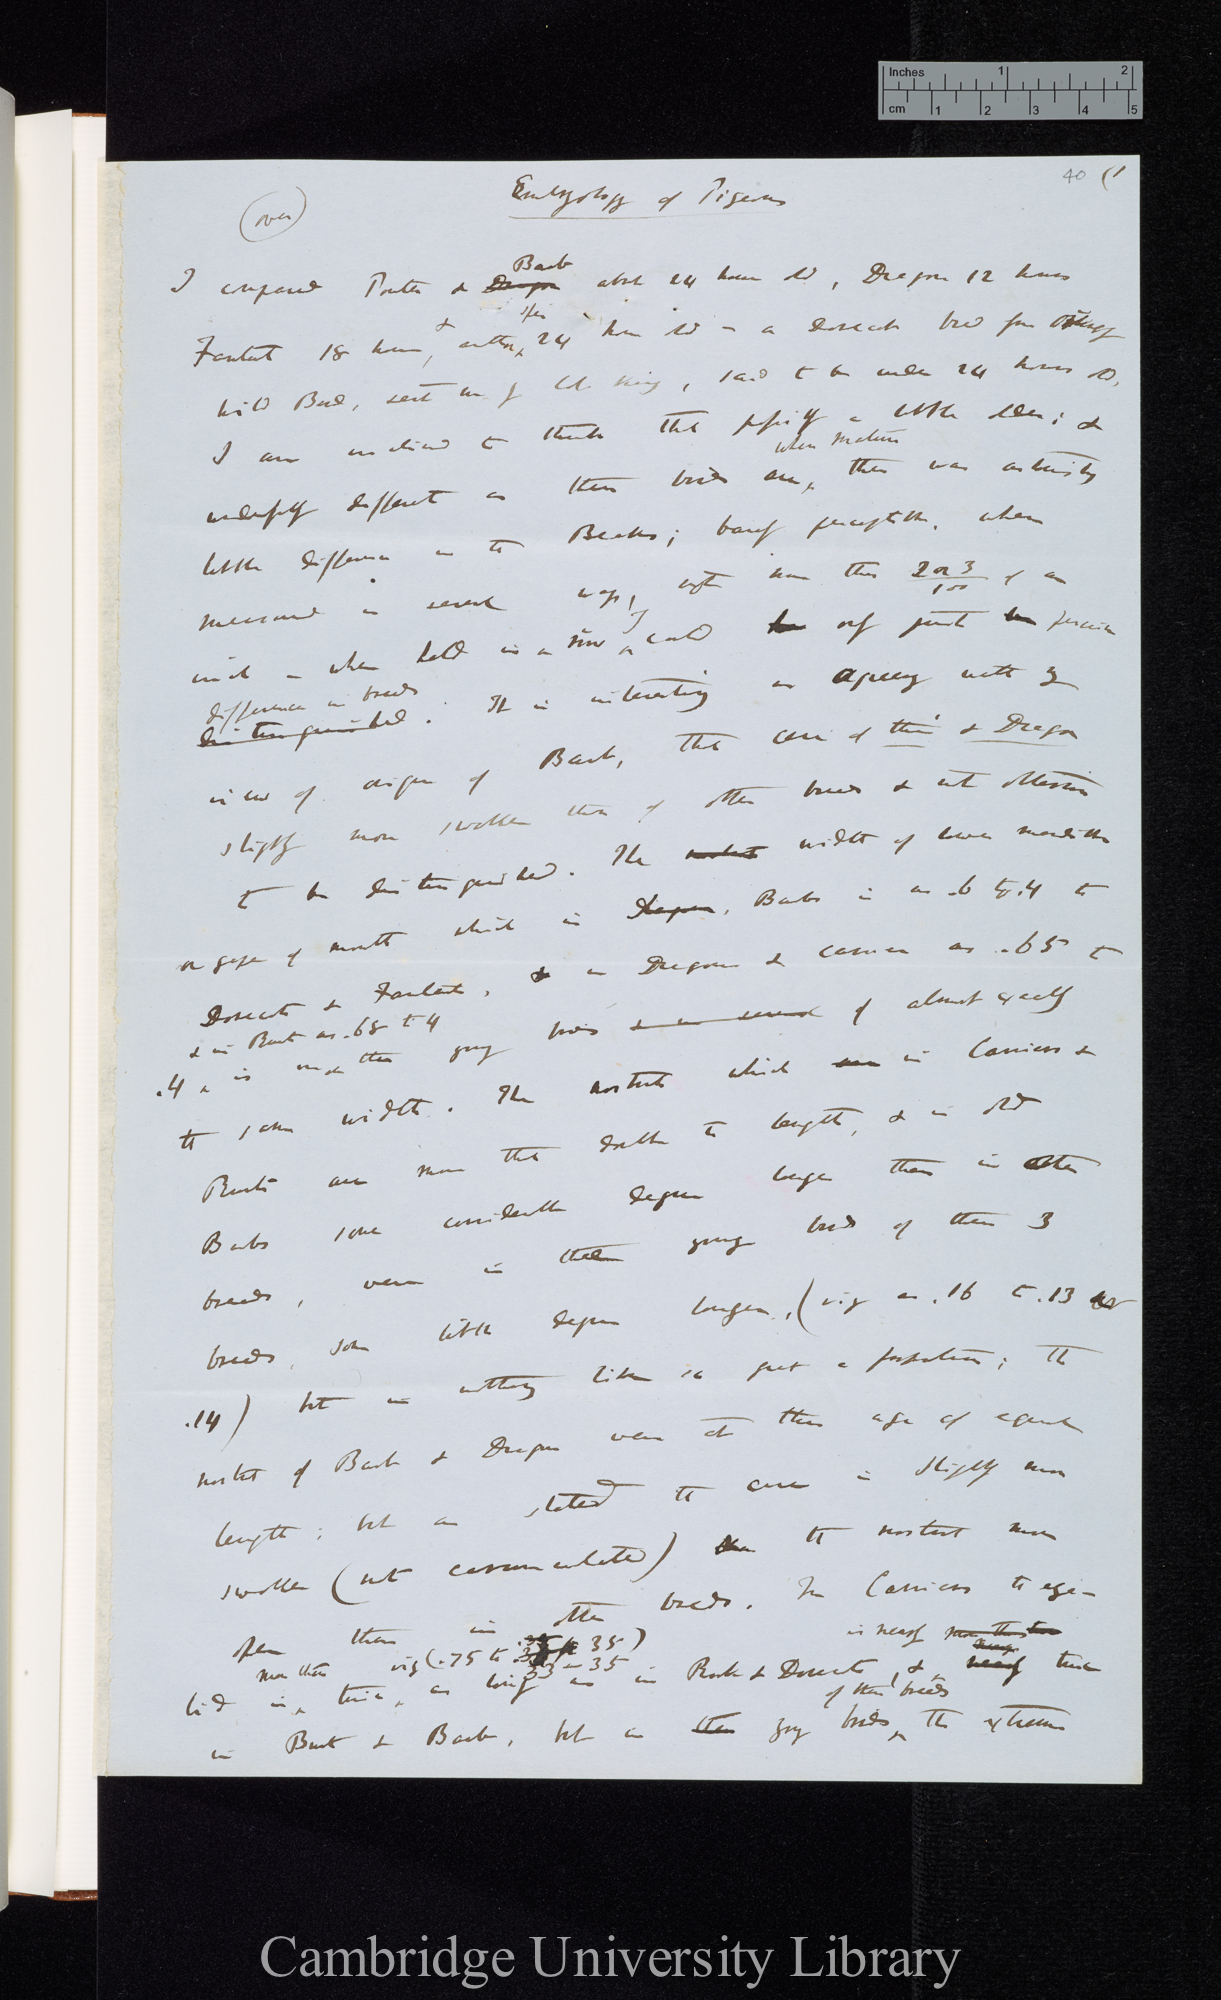 Inches 1 2
cm 1 2 3 4 5
40 (1
(over)
Embryology of Pigeons
Barb
I compared Pouter & Dragon about 24 hours old, Dragon 12 hours
Fantail 18 hours, & another, 24 hours old — a Dovecot bird from
wild Bird, sent me by, said to be under 24 hours old.
I am inclined to think that possibly a little older; &
when mature
wonderfully different as these birds are, there was astonishingly
little difference in the Beaks; barely perceptible. when
measured in several ways, not more than 2 or 3/100 of an
inch — when held in a row, could only just be perceived
difference in breeds
distinguished. It is interesting as agreeing with my
view of origin of Barb, that cere of this & Dragon
slightly more swollen than of other breeds & with attention
to be distinguished. The nostril width of lower mandible
or gape of mouth which in Dragon, Barbs is as .6 to .4 to
Dovecots & Fantails, & in Dragons & carrier as .65 to
& in Runt as .68 to 4
.4, is in the young birds & in several of almost exactly
the same width. The nostrils which are in Carriers &
Runts are more than double the length, & in old
Barbs some considerable degree longer than in other
breeds, were in these young birds of these 3
breeds, some little degree longer, (viz as .16 to .13 or
.14) but in nothing like so great a proportion; the
nostril of Barb & Dragon were at this age of equal
length; but as stated the cere is slightly more
swollen (not carunculated) the nostril more
open than in other breeds. In Carriers the eye-
more than viz (.75 to 33–35) is nearly
lid is, twice, as long as in Rock & Dovecots, & nearly twice
of these breeds
in Runt & Barb, but in these young birds, the extreme
Cambridge University Library